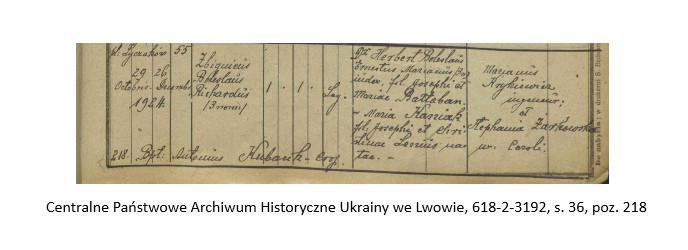 ul. Łyczaków 55
29 26
Octobris Decembr.
1924.
Zbigneus
Boleslaus
Richardus
(3 nomi)
1 . 1 .
Leg.
Herbert Boleslaus
Ernestus Marianus
fil. Josephi et
Mariae Battaban.
- Maria Kaniak
fil. Josephi et Chri-
stinae
tae. -
Marianus
ingenieur;
et
Stephania Zarkowska
ux. Caroli.
218. Bpt. Antonius Kubank - Coop.
Centralne Państwowe Archiwum Historyczne Ukrainy we Lwowie, 618-2-3192, s. 36, poz. 218